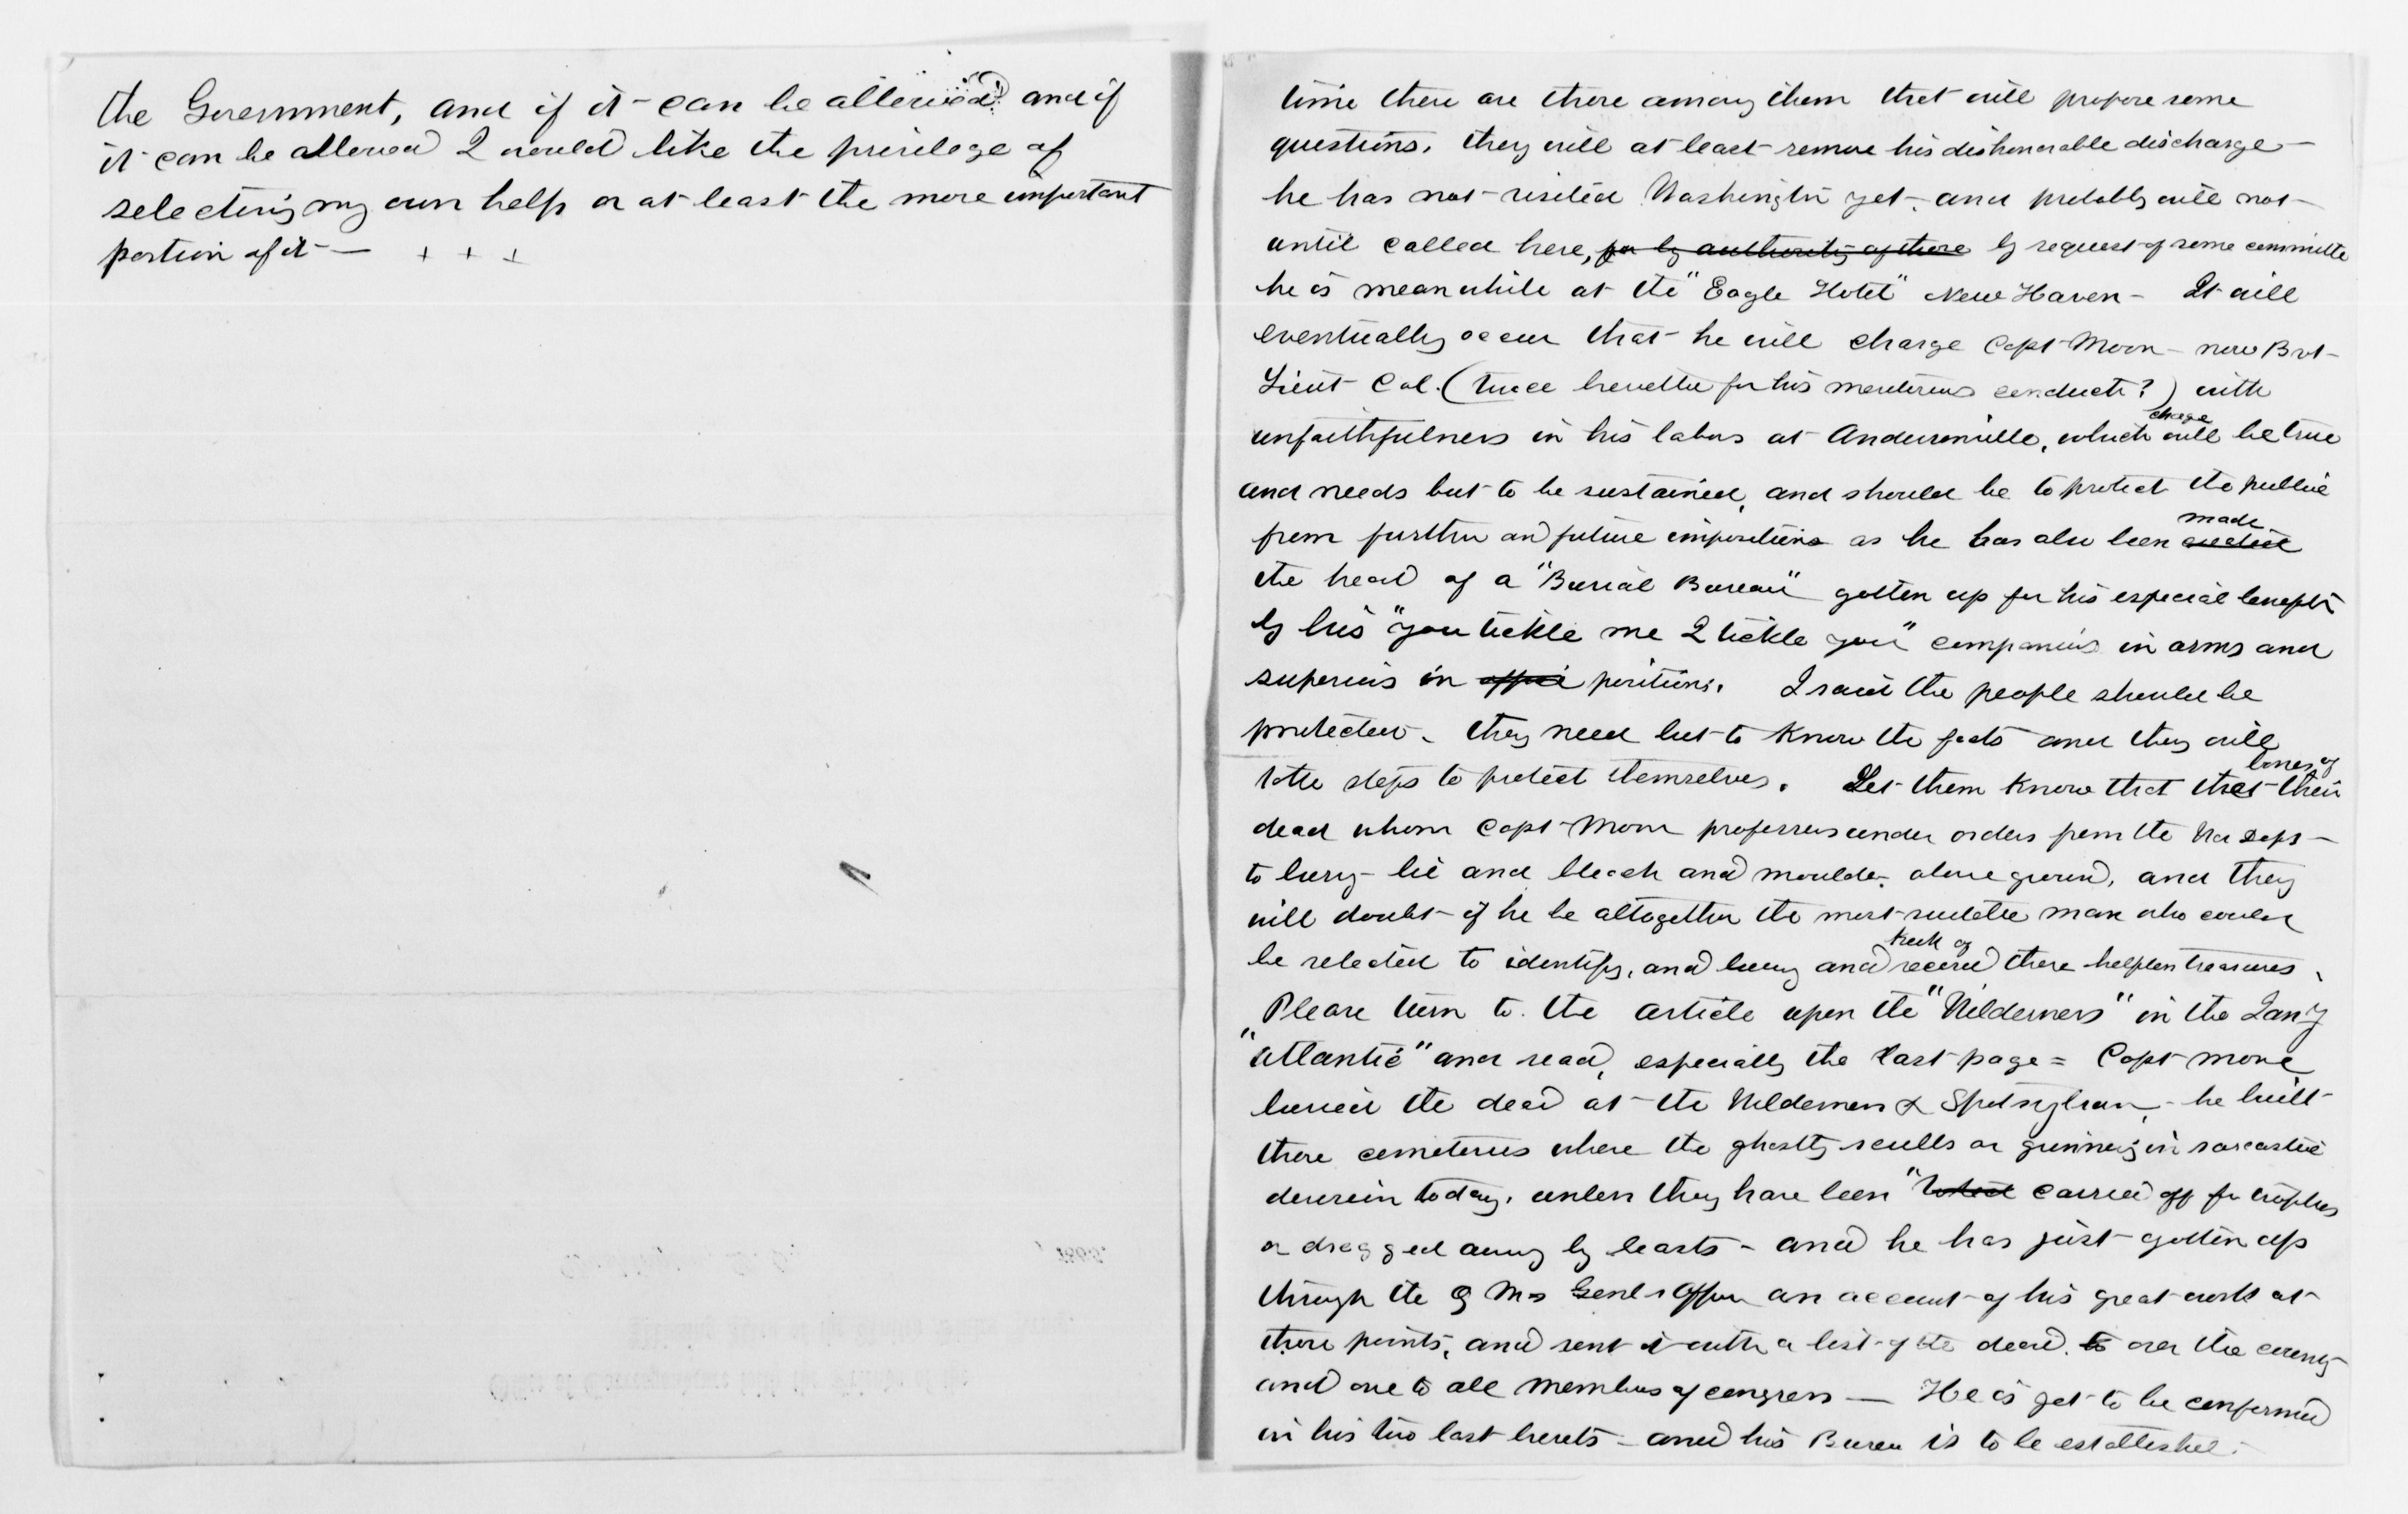 the Government, and if it can be allowed and if
it can be allowed I would like the privilege of
selecting my own help or at least the more important
portion of it — + + +
time there are those among them that will propose some
questions. they will at least remove his dishonorable discharge —
he has not visited Washington yet, and probably will not
until called here, by authority of those by request of some committe
he is meanwhile at the "Eagle Hotel" New Haven – It will
eventually occur that he will charge Capt Moore – now Brvt
Lieut Col. (twice brevetted for his meritorious conduct?) with
charge
unfaithfulness in his labors at Andersonville, which will be true
and needs but to be sustained, and should be to protect the public
made
from further and future impositions as he has also been
the head of a "Burial Bureau" gotten up for his especial benefit
by his "you tickle me I tickle you" companions in arms and
superiors in office positions. I said the people should be
protected. they need but to know the facts and they will
bones of
take steps to protect themselves. Let them know that that their
dead whom Capt Moore professes under orders from the War Dept
to bury – lie and bleach and moulder above ground, and they
will doubt if he be altogether the most suitable man who could
treck of
be selected to identify, and bury and record these helpless treasures,
Please turn to the article upon the "Wilderness" in the Jany
"Atlantic" and read, especially the last page = Capt Moore
buried the dead at the Wilderness & Spotsylvan, – he built
those cemeteries where the ghostly sculls are grinning in sarcastic
derision today, unless they have been " carried off for trophies
or dragged away by beasts – and he has just gotten up
through the Q M Genls Office an account of his great work at
those points, and sent it with a list of the dead to over the country
and one to all members of congress — He is yet to be confirmed
in his two last brevets – and his Bureau is to be established.